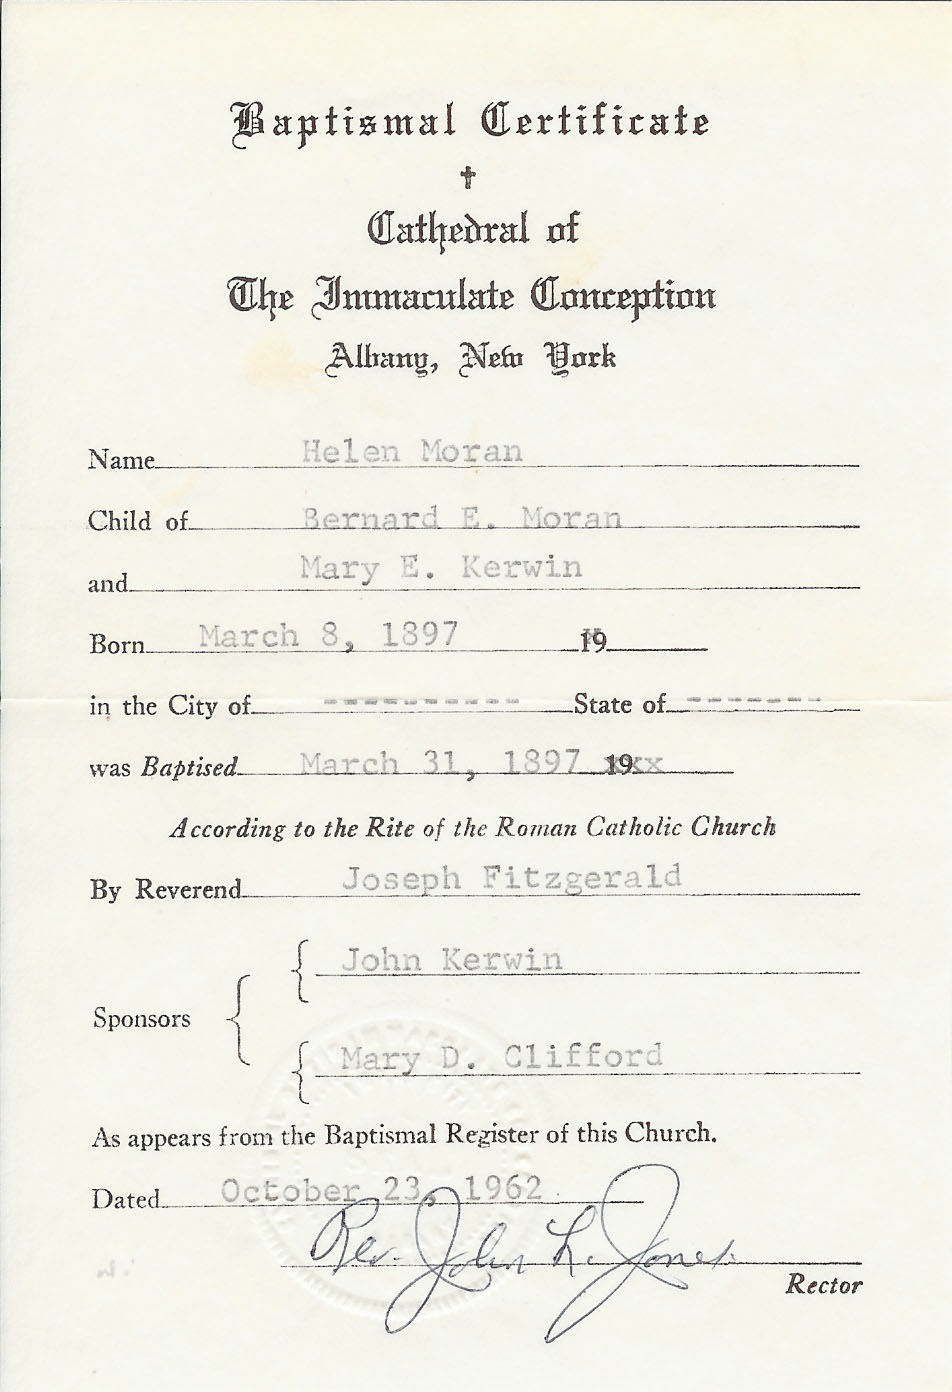 Baptismal Certificate
✝
Cathedral of
The Immaculate Conception
Albany, New York
Name Helen Moran
Child of Bernard E. Moran
and Mary E. Kerwin
Born March 8, 1897 19
in the City of ---------- State of -------
was Baptised March 31, 1897 19xxx
According to the Rite of the Roman Catholic Church
By Reverend Joseph Fitzgerald
John Kerwin
Sponsors
Mary D. Clifford
As appears from the Baptismal Register of this Church.
Dated October 23, 1962
Rev. John L. Jones
Rector